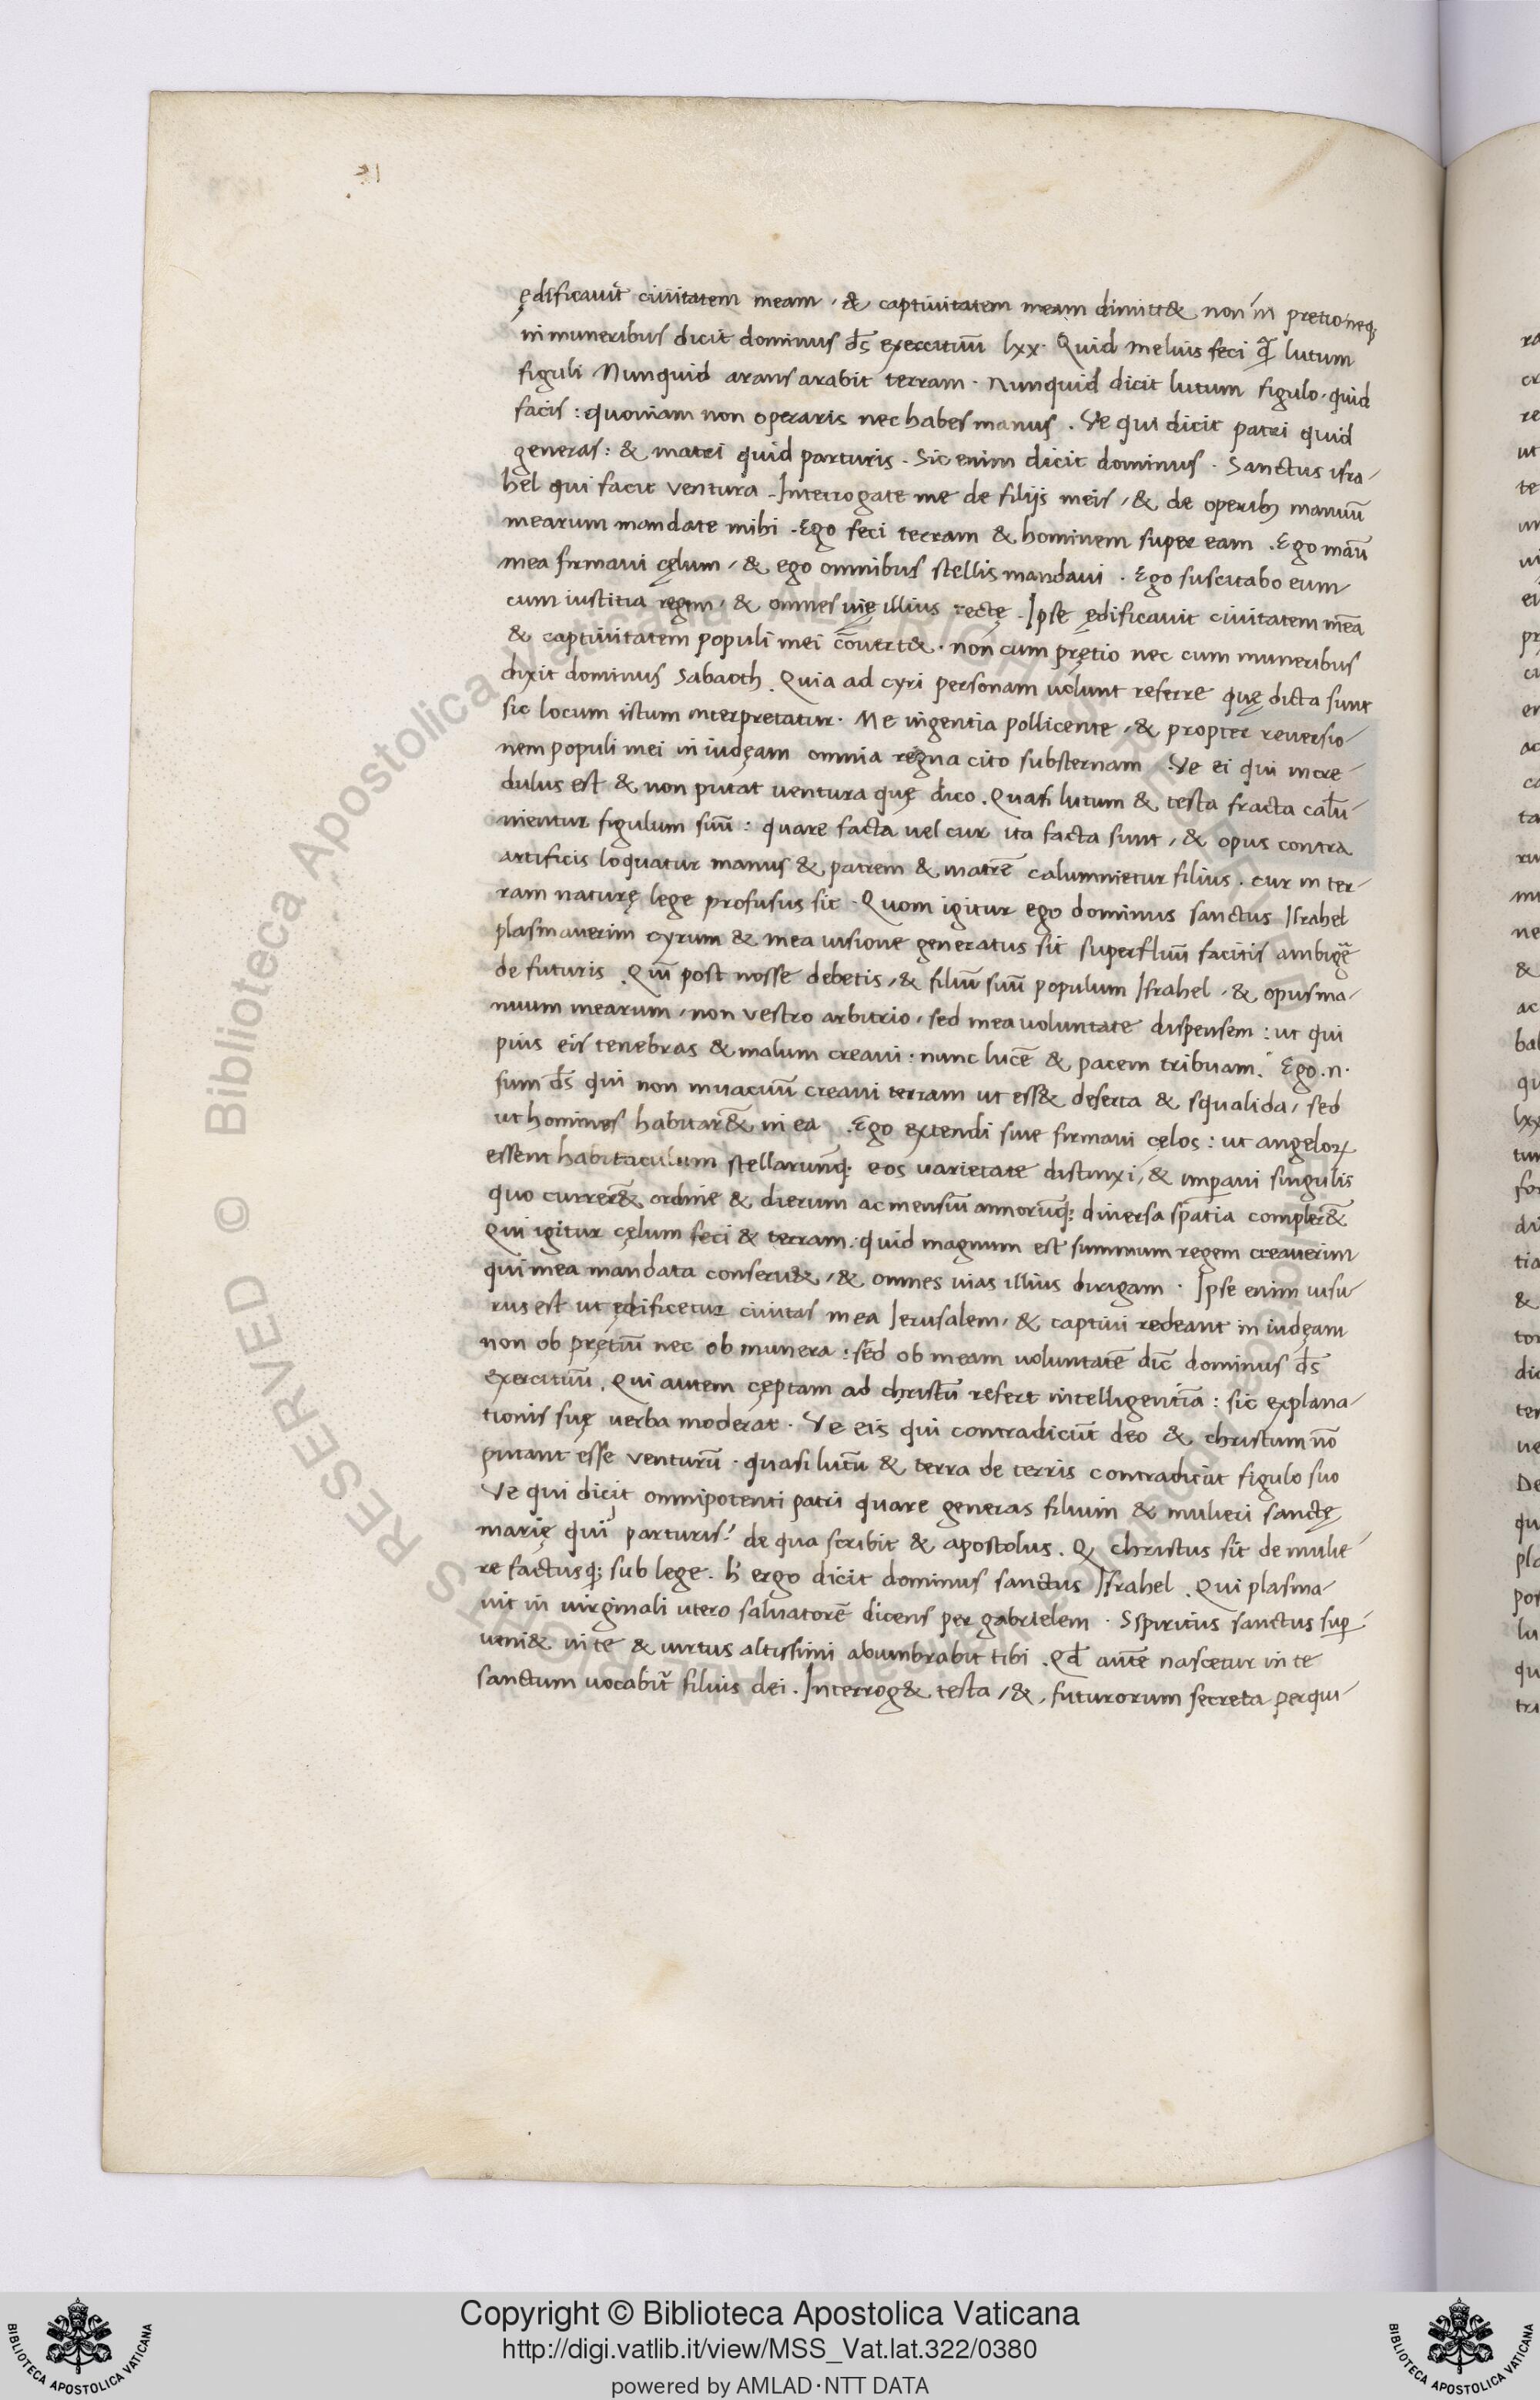 ędificauit̃ ciuitatem meam, & captiuitatem meam dimitt& non in pretio neq;
in muneribus dicit dominus ds̄ exercituū lxx. Quid melius feci q̄ lutum
figuli Nunquid arans arabit terram. Nunquid dicit lutum figulo, quid
facis: quoniam non operaris nec habes manus. Ve qui dicit patri quid
generas: & matri quid parturis. Sic enim dicit dominus. Sanctus isra-
hel qui facit ventura. Interrogate me de filijs meis, & de operib; manuū
mearum mandate mihi. Ego feci terram & hominem super eam. Ego manū
mea firmaui cęlum, & ego omnibus stellis mandaui. Ego suscitabo eum
cum iustitia regem, & omnes uię illius rectę. Ipse ędificauit ciuitatem meā
& captiuitatem populi mei cōuert&. non cum prętio nec cum muneribus
dixit dominus Sabaoth. Quia ad cyri personam uolunt referre quę dicta sunt
sic locum istum interpretatur. Me ingentia pollicente, & propter reuersio-
nem populi mei in iudęam omnia regna cito substernam. Ve ei qui incre-
dulus est & non putat uentura quę dico. Quasi lutum & testa fracta calū-
nientur figulum suū: quare facta uel cur ita facta sunt, & opus contra
artificis loquatur manus & patrem & matrē calumnietur filius. cur in ter-
ram naturę lege profusus sit. Quom igitur ego dominus sanctus Israhel
plasmauerim cyrum & mea uisione generatus sit superfluū facitis ambigẽ
de futuris. Qui post nosse debetis, & filiū suū populum Israhel, & opus ma-
nuum mearum, non vestro arbitrio, sed mea uoluntate dispensem: ut qui
pius eis tenebras & malum creaui: nunc lucē & pacem tribuam. Ego .n.
sum ds̄ qui non inuacuū creaui terram ut ess& deserta & squalida, sed
ut homines habitar&̄ in ea. Ego extendi siue firmaui cęlos: ut angeloꝝ
essent habitaculum stellarumq; eos uarietate distinxi, & imperaui singulis
quo currer&̄ ordine & dierum ac mensiū annorūq; diuersa spatia compler&̄
Qui igitur cęlum feci & terram: quid magnum est summum regem creauerim
qui mea mandata conseru&, & omnes uias illius dirigam. Ipse enim uisu-
rus est ut ędificetur ciuitas mea Ierusalem, & captiui redeant in iudęam
non ob pręțiū nec ob munera: sed ob meam uoluntatē dic̄ dominus ds̄
exercituū. Qui autem cęptam ad christū refert intelligentiā: sic explana-
tionis suę uerba moderat. Ve eis qui contradicūt deo & christum nō
putant esse venturū. quasi lutū & terra de terris contradicāt figulo suo
Ve qui dicit omnipotenti patri quare generas filium & mulieri sanctę
marię qui parturis? de qua scribit & apostolus. Q christus sit de mulie-
re factusq; sub lege. h' ergo dicit dominus sanctus Israhel. Qui plasma-
uit in uirginali utero saluatorē dicens per gabrielem. Sspiritus sanctus sup-
ueni& in te & uirtus altissimi abumbrabit tibi. Qd autē nascetur in te
sanctum uocabit̃ filius dei. Interrog& testa, & futurorum secreta perqui-
Copyright © Biblioteca Apostolica Vaticana
http://digi.vatlib.it/view/MSS_Vat.lat.322/0380
powered by AMLAD·NTT DATA